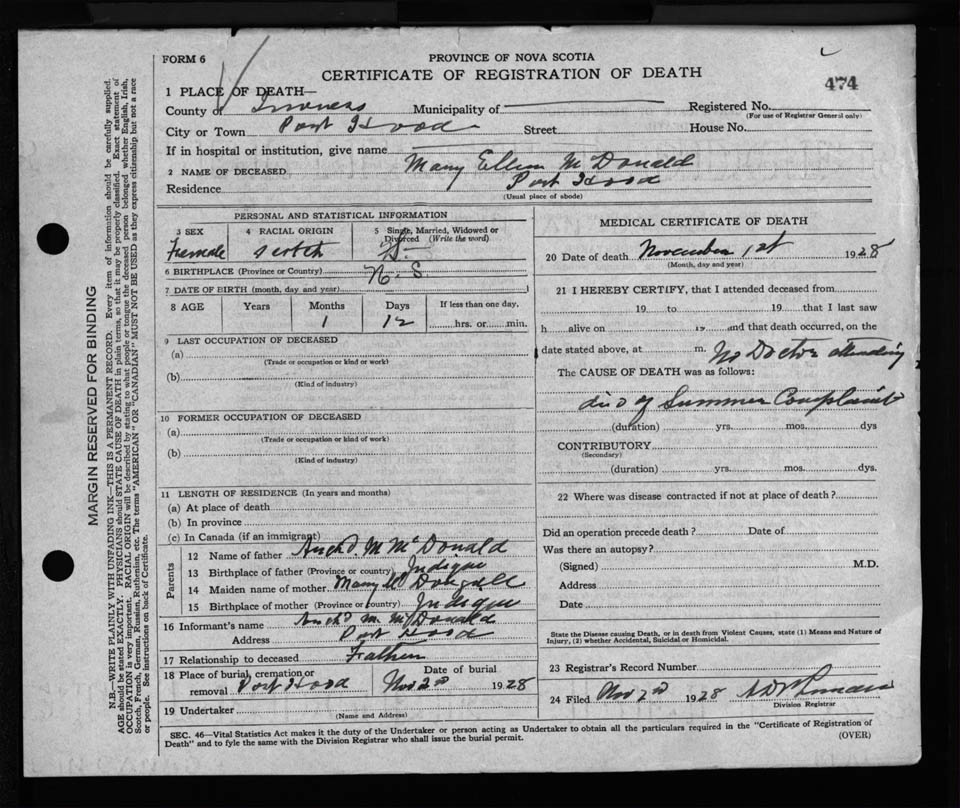 FORM 6
PROVINCE OF NOVA SCOTIA
CERTIFICATE OF REGISTRATION OF DEATH
474
1 PLACE OF DEATH—
County of Inverness Municipality of Registered No.
(For use of Registrar General only)
City or Town Port Hood Street House No.
If in hospital or institution, give name
2 NAME OF DECEASED Mary Ellen McDonald
Residence Port Hood
(Usual place of abode)
PERSONAL AND STATISTICAL INFORMATION
3 SEX 4 RACIAL ORIGIN 5 Single, Married, Widowed or Divorced (Write the word)
Female Scotch S
6 BIRTHPLACE (Province or Country) N. S.
7 DATE OF BIRTH (month, day and year)
8 AGE Years Months Days If less than one day,
1 12 hrs. or min.
9 LAST OCCUPATION OF DECEASED
(a)
(Trade or occupation or kind of work)
(b)
(Kind of industry)
10 FORMER OCCUPATION OF DECEASED
(a)
(Trade or occupation or kind of work)
(b)
(Kind of industry)
11 LENGTH OF RESIDENCE (In years and months)
(a) At place of death
(b) In province
(c) In Canada (if an immigrant)
Parents
12 Name of father Arch'd M McDonald
13 Birthplace of father (Province or country) Judique
14 Maiden name of mother Mary McDougall
15 Birthplace of mother (Province or country) Judique
16 Informant's name Arch'd M. McDonald
Address Port Hood
17 Relationship to deceased Father
18 Place of burial, cremation or removal Port Hood Date of burial Nov 2nd 1928
19 Undertaker
(Name and Address)
MEDICAL CERTIFICATE OF DEATH
20 Date of death November 1st 1928
(Month, day and year)
21 I HEREBY CERTIFY, that I attended deceased from
19 to 19 that I last saw
h alive on 19 and that death occurred, on the
date stated above, at m. No Doctor attending
The CAUSE OF DEATH was as follows:
died of Summer Complaint
(duration) yrs. mos. dys
CONTRIBUTORY
(Secondary)
(duration) yrs. mos. dys.
22 Where was disease contracted if not at place of death?
Did an operation precede death? Date of
Was there an autopsy?
(Signed) M.D.
Address
Date
State the Disease causing Death, or in death from Violent Causes, state (1) Means and Nature of
Injury, (2) whether Accidental, Suicidal or Homicidal.
23 Registrar's Record Number
24 Filed Nov 2nd 1928
Division Registrar
SEC. 46—Vital Statistics Act makes it the duty of the Undertaker or person acting as Undertaker to obtain all the particulars required in the "Certificate of Registration of
Death" and to fyle the same with the Division Registrar who shall issue the burial permit.
(OVER)
MARGIN RESERVED FOR BINDING
N.B.—WRITE PLAINLY WITH UNFADING INK—THIS IS A PERMANENT RECORD. Every item of information should be carefully supplied.
AGE should be stated EXACTLY. PHYSICIANS should STATE CAUSE OF DEATH in plain terms, so that it may be properly classified. Exact statement of
OCCUPATION is very important. RACIAL ORIGIN will be described by stating to what people or tongue the deceased person belonged whether English, Irish,
Scotch, French, German, Russian, Ruthenian, etc. The terms "AMERICAN" OR "CANADIAN" MUST NOT BE USED as they express citizenship but not a race
or people. See instructions on back of Certificate.